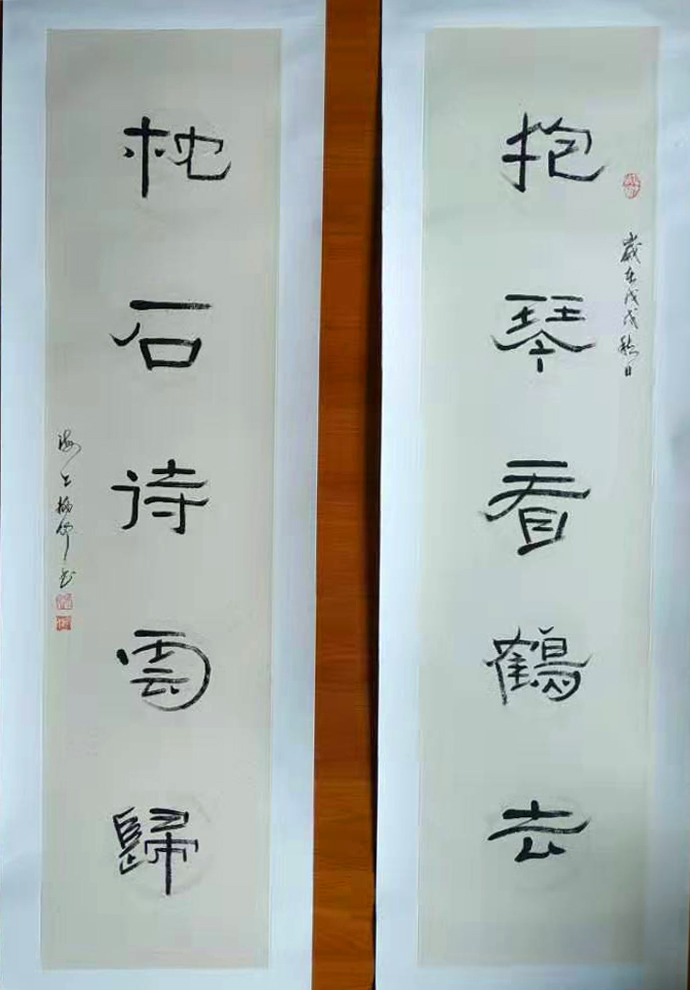 抱琴看鶴去
歲在戊戌秋日
枕石诗雲歸
海上